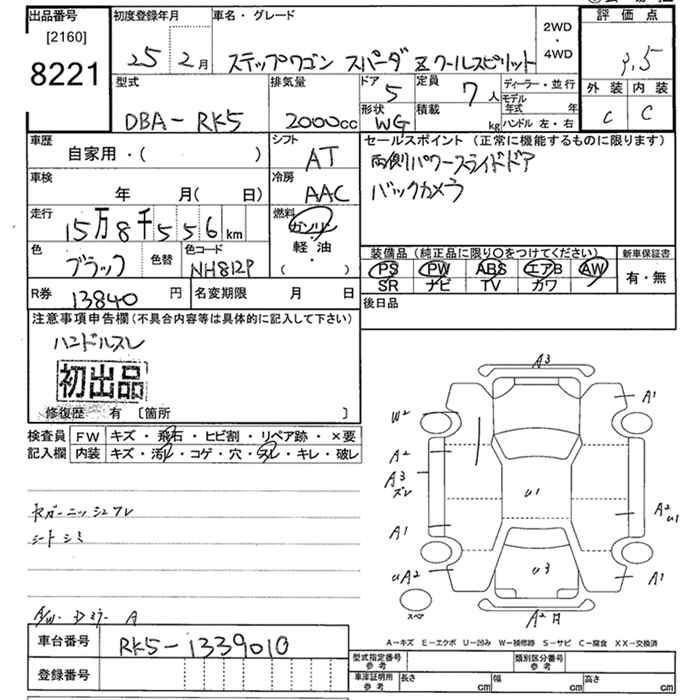 出品番号
[2160]
8221
初度登録年月
25 2月
車名・グレード
ステップワゴン スパーダ Zクールスピリット
2WD
・
4WD
評価点
3.5
外装 内装
C C
型式
DBA-RK5
排気量
2000cc
ドア 5
定員 7人
ディーラー・並行
形状 WG
積載 kg
モデル年式 年
ハンドル 左・右
車歴
自家用・( )
シフト
AT
セールスポイント(正常に機能するものに限ります)
両側パワースライドドア
バックカメラ
車検
年 月( 日)
冷房
AAC
走行
15万8千556km
燃料
ガソリン
軽油
( )
色
ブラック
色替
色コード
NH812P
装備品(純正品に限り○をつけてください)
PS PW ABS エアB AW
SR ナビ TV カワ
新車保証書
有・無
R券 13840円
名変期限 月 日
後日品
注意事項申告欄(不具合内容等は具体的に記入して下さい)
ハンドルスレ
初出品
修復歴 有 〔箇所 〕
検査員記入欄
FW キズ・飛石・ヒビ割・リペア跡・×要
内装 キズ・汚レ・コゲ・穴・スレ・キレ・破レ
シートシミ
A3
A1
W2
A2
A3
ズレ
U1
A2
U1
A1
UA2
U3
A1
スペア
A2
A-キズ E-エクボ U-凹み W-補修跡 S-サビ C-腐食 XX-交換済
車台番号 RK5-1339010
登録番号
型式指定番号
参考
類別区分番号
参考
車庫証明用
参考
長さ cm 幅 cm 高さ cm